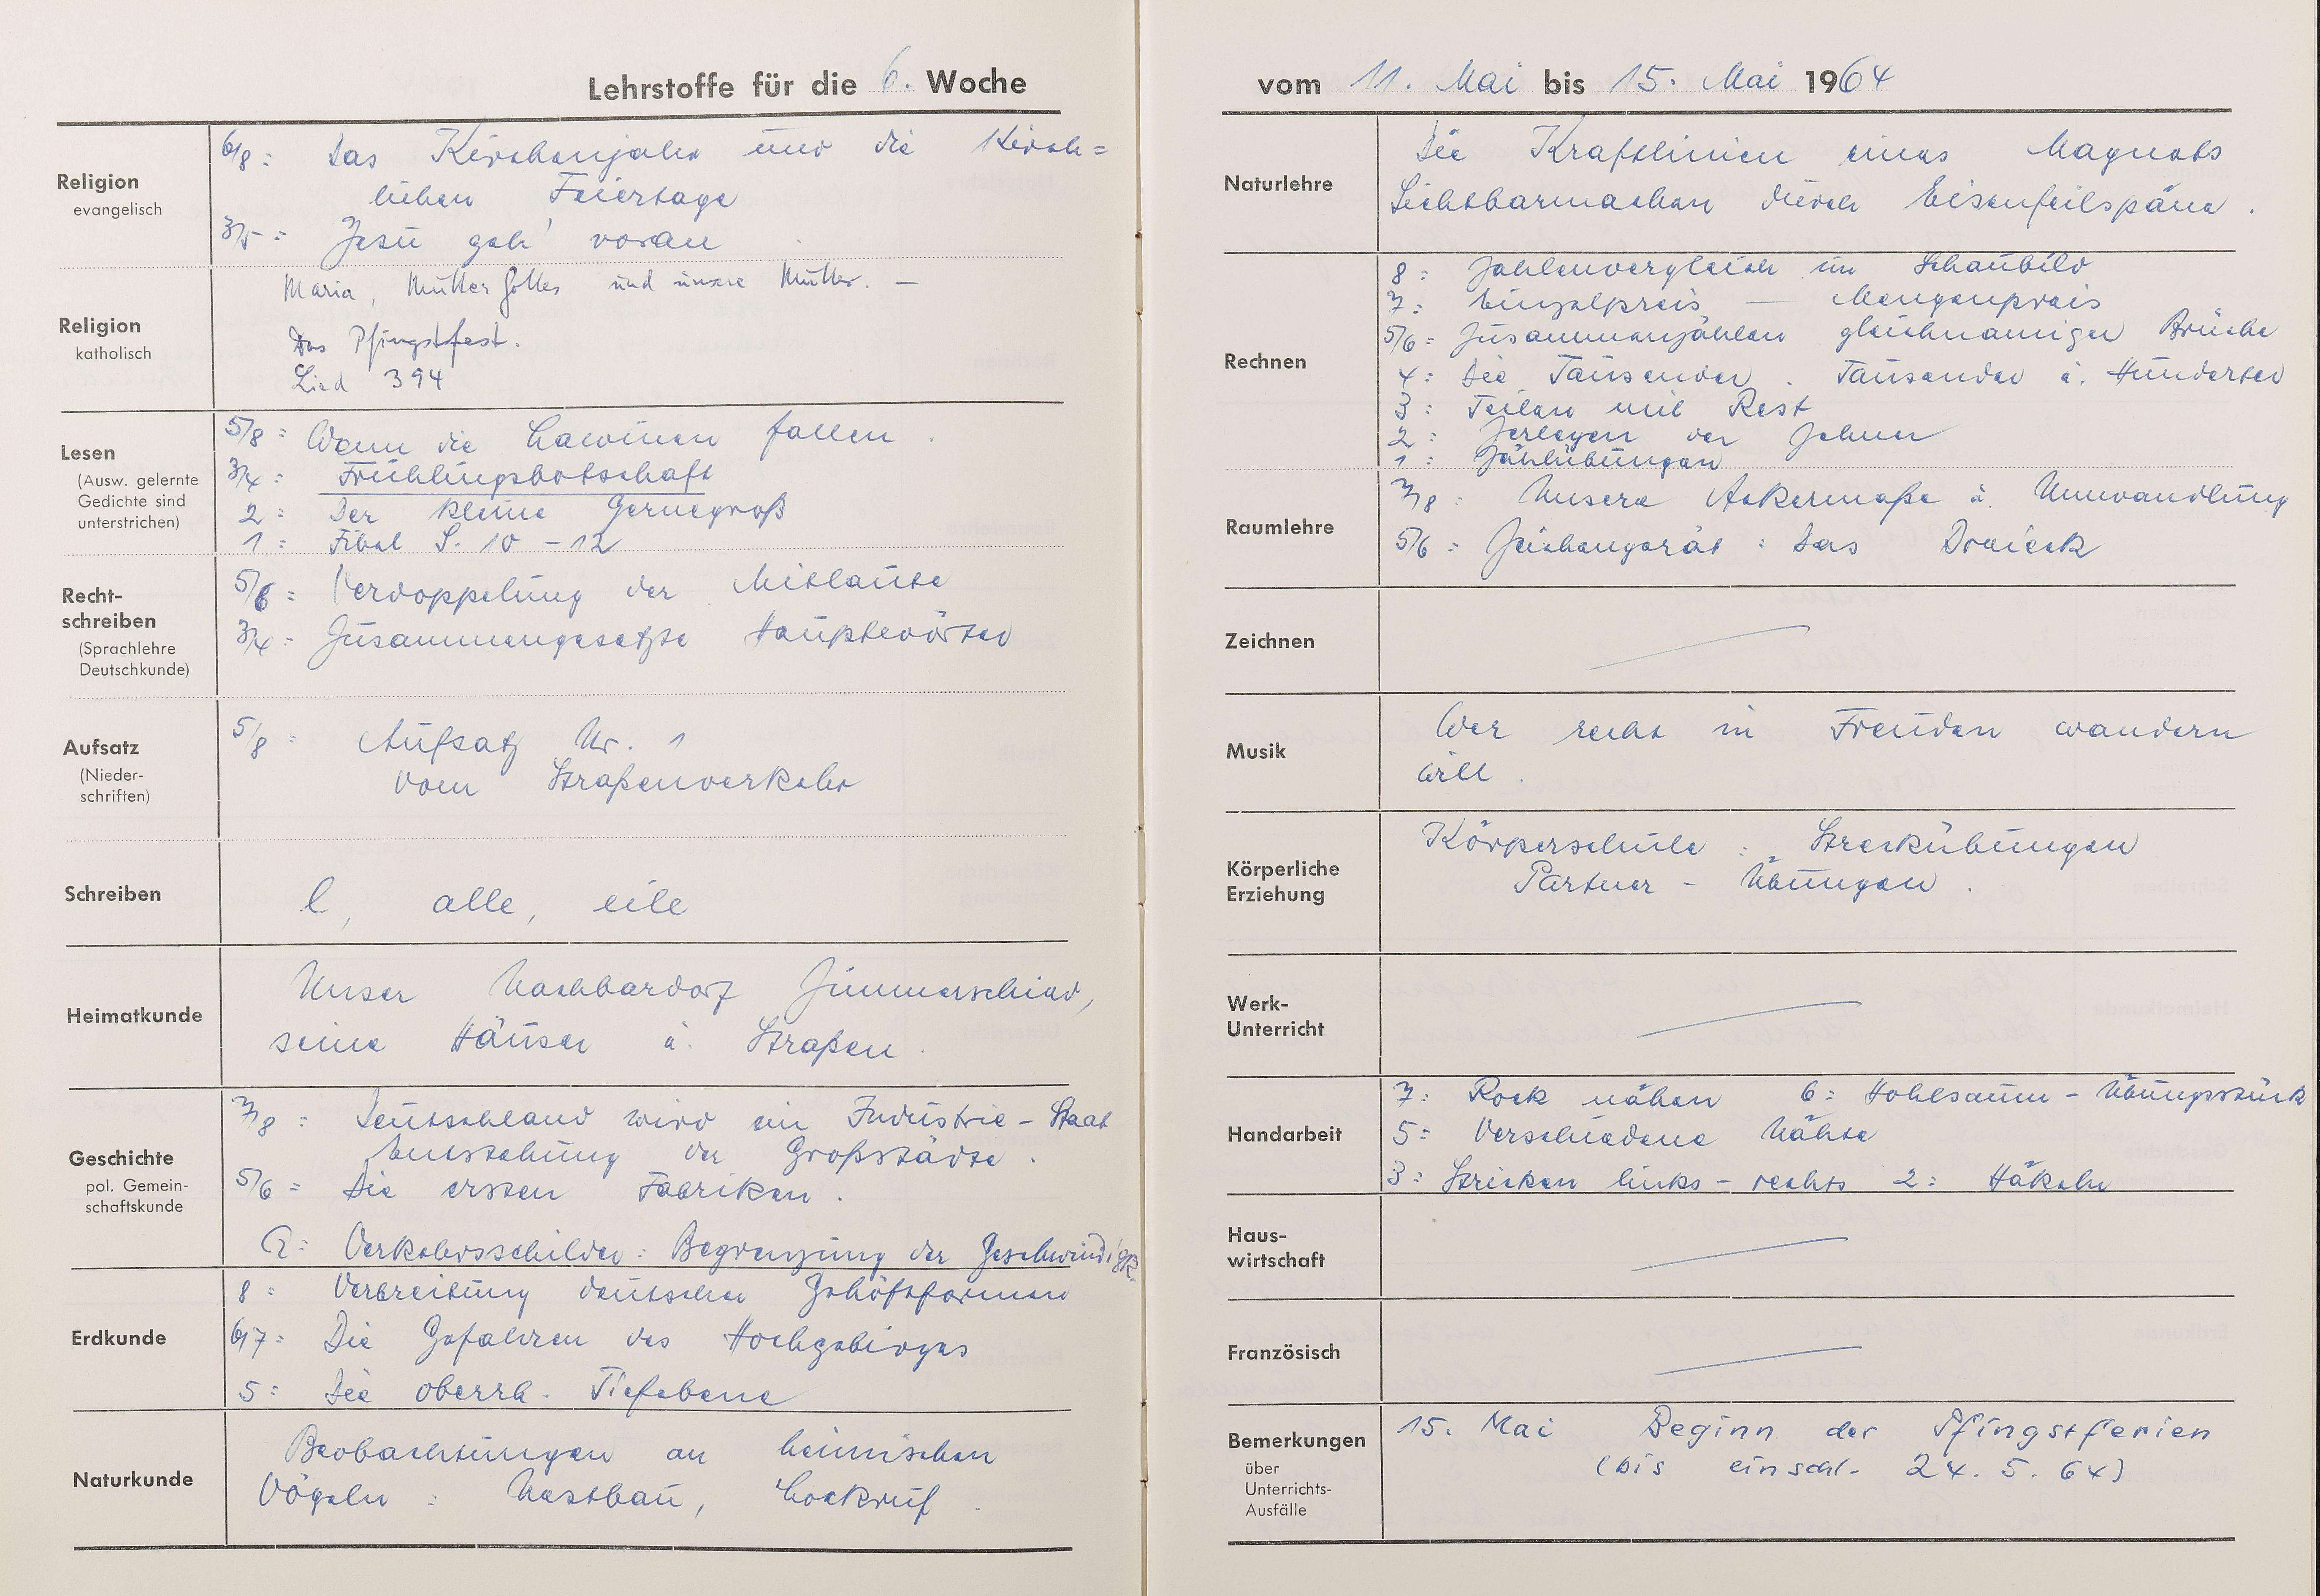 Lehrstoffe für die 6. Woche
Religion
evangelisch
6/8: Das Kirchenjahr und die Kirch=
lichen Feiertage
3/5: Jesu geh' voran
Religion
katholisch
Maria, Mutter Gottes und unsere Mutter. –
Das Pfingstfest.
Lied 394
Lesen
(Ausw. gelernte
Gedichte sind
unterstrichen)
5/8: Wenn die Lawinen fallen.
3/4: Frühlingsbotschaft
2: Der kleine Gernegroß
1: Fibel S. 10 – 12
Recht-
schreiben
(Sprachlehre
Deutschkunde)
5/6: Verdoppelung der Mitlaute
3/4: Zusammengesetzte Hauptwörter
Aufsatz
(Nieder-
schriften)
5/8: Aufsatz Nr. 1
Vom Straßenverkehr
Schreiben
l, alle, eile
Heimatkunde
Unser Nachbardorf Zimmerschied,
seine Häuser u. Straßen.
Geschichte
pol. Gemein-
schaftskunde
7/8: Deutschland wird ein Industrie-Staat
Entstehung der Großstädte.
5/6: Die ersten Fabriken.
G: Verkehrsschilder: Begrenzung der Geschwindigk.
Erdkunde
8: Verbreitung deutscher Gehöftformen
6/7: Die Gefahren des Hochgebirges
5: Die oberrh. Tiefebene
Naturkunde
Beobachtungen an heimischen
Vögeln: Nestbau, Lockruf.
vom 11. Mai bis 15. Mai 1964
Naturlehre
Die Kraftlinien eines Magnets
Sichtbarmachen durch Eisenfeilspäne.
Rechnen
8: Zahlenvergleich im Schaubild
7: Einzelpreis — Mengenpreis
5/6: Zusammenzählen gleichnamiger Brüche
4: Die Tausender. Tausender u. Hunderter
3: Teilen mit Rest
2: Zerlegen der Zehner
1: Zählübungen
Raumlehre
7/8: Unsere Ackermaße u. Umwandlung
5/6: Zeichengerät: Das Dreieck
Zeichnen
Musik
Wer recht in Freuden wandern
will.
Körperliche
Erziehung
Körperschule: Streckübungen
Partner - Übungen.
Werk-
Unterricht
Handarbeit
7: Rock nähen 6: Hohlsaum - Übungsstück
5: Verschiedene Nähte
3: Stricken links - rechts 2: Häkeln
Haus-
wirtschaft
Französisch
Bemerkungen
über
Unterrichts-
Ausfälle
15. Mai Beginn der Pfingstferien
(bis einschl. 24. 5. 64)